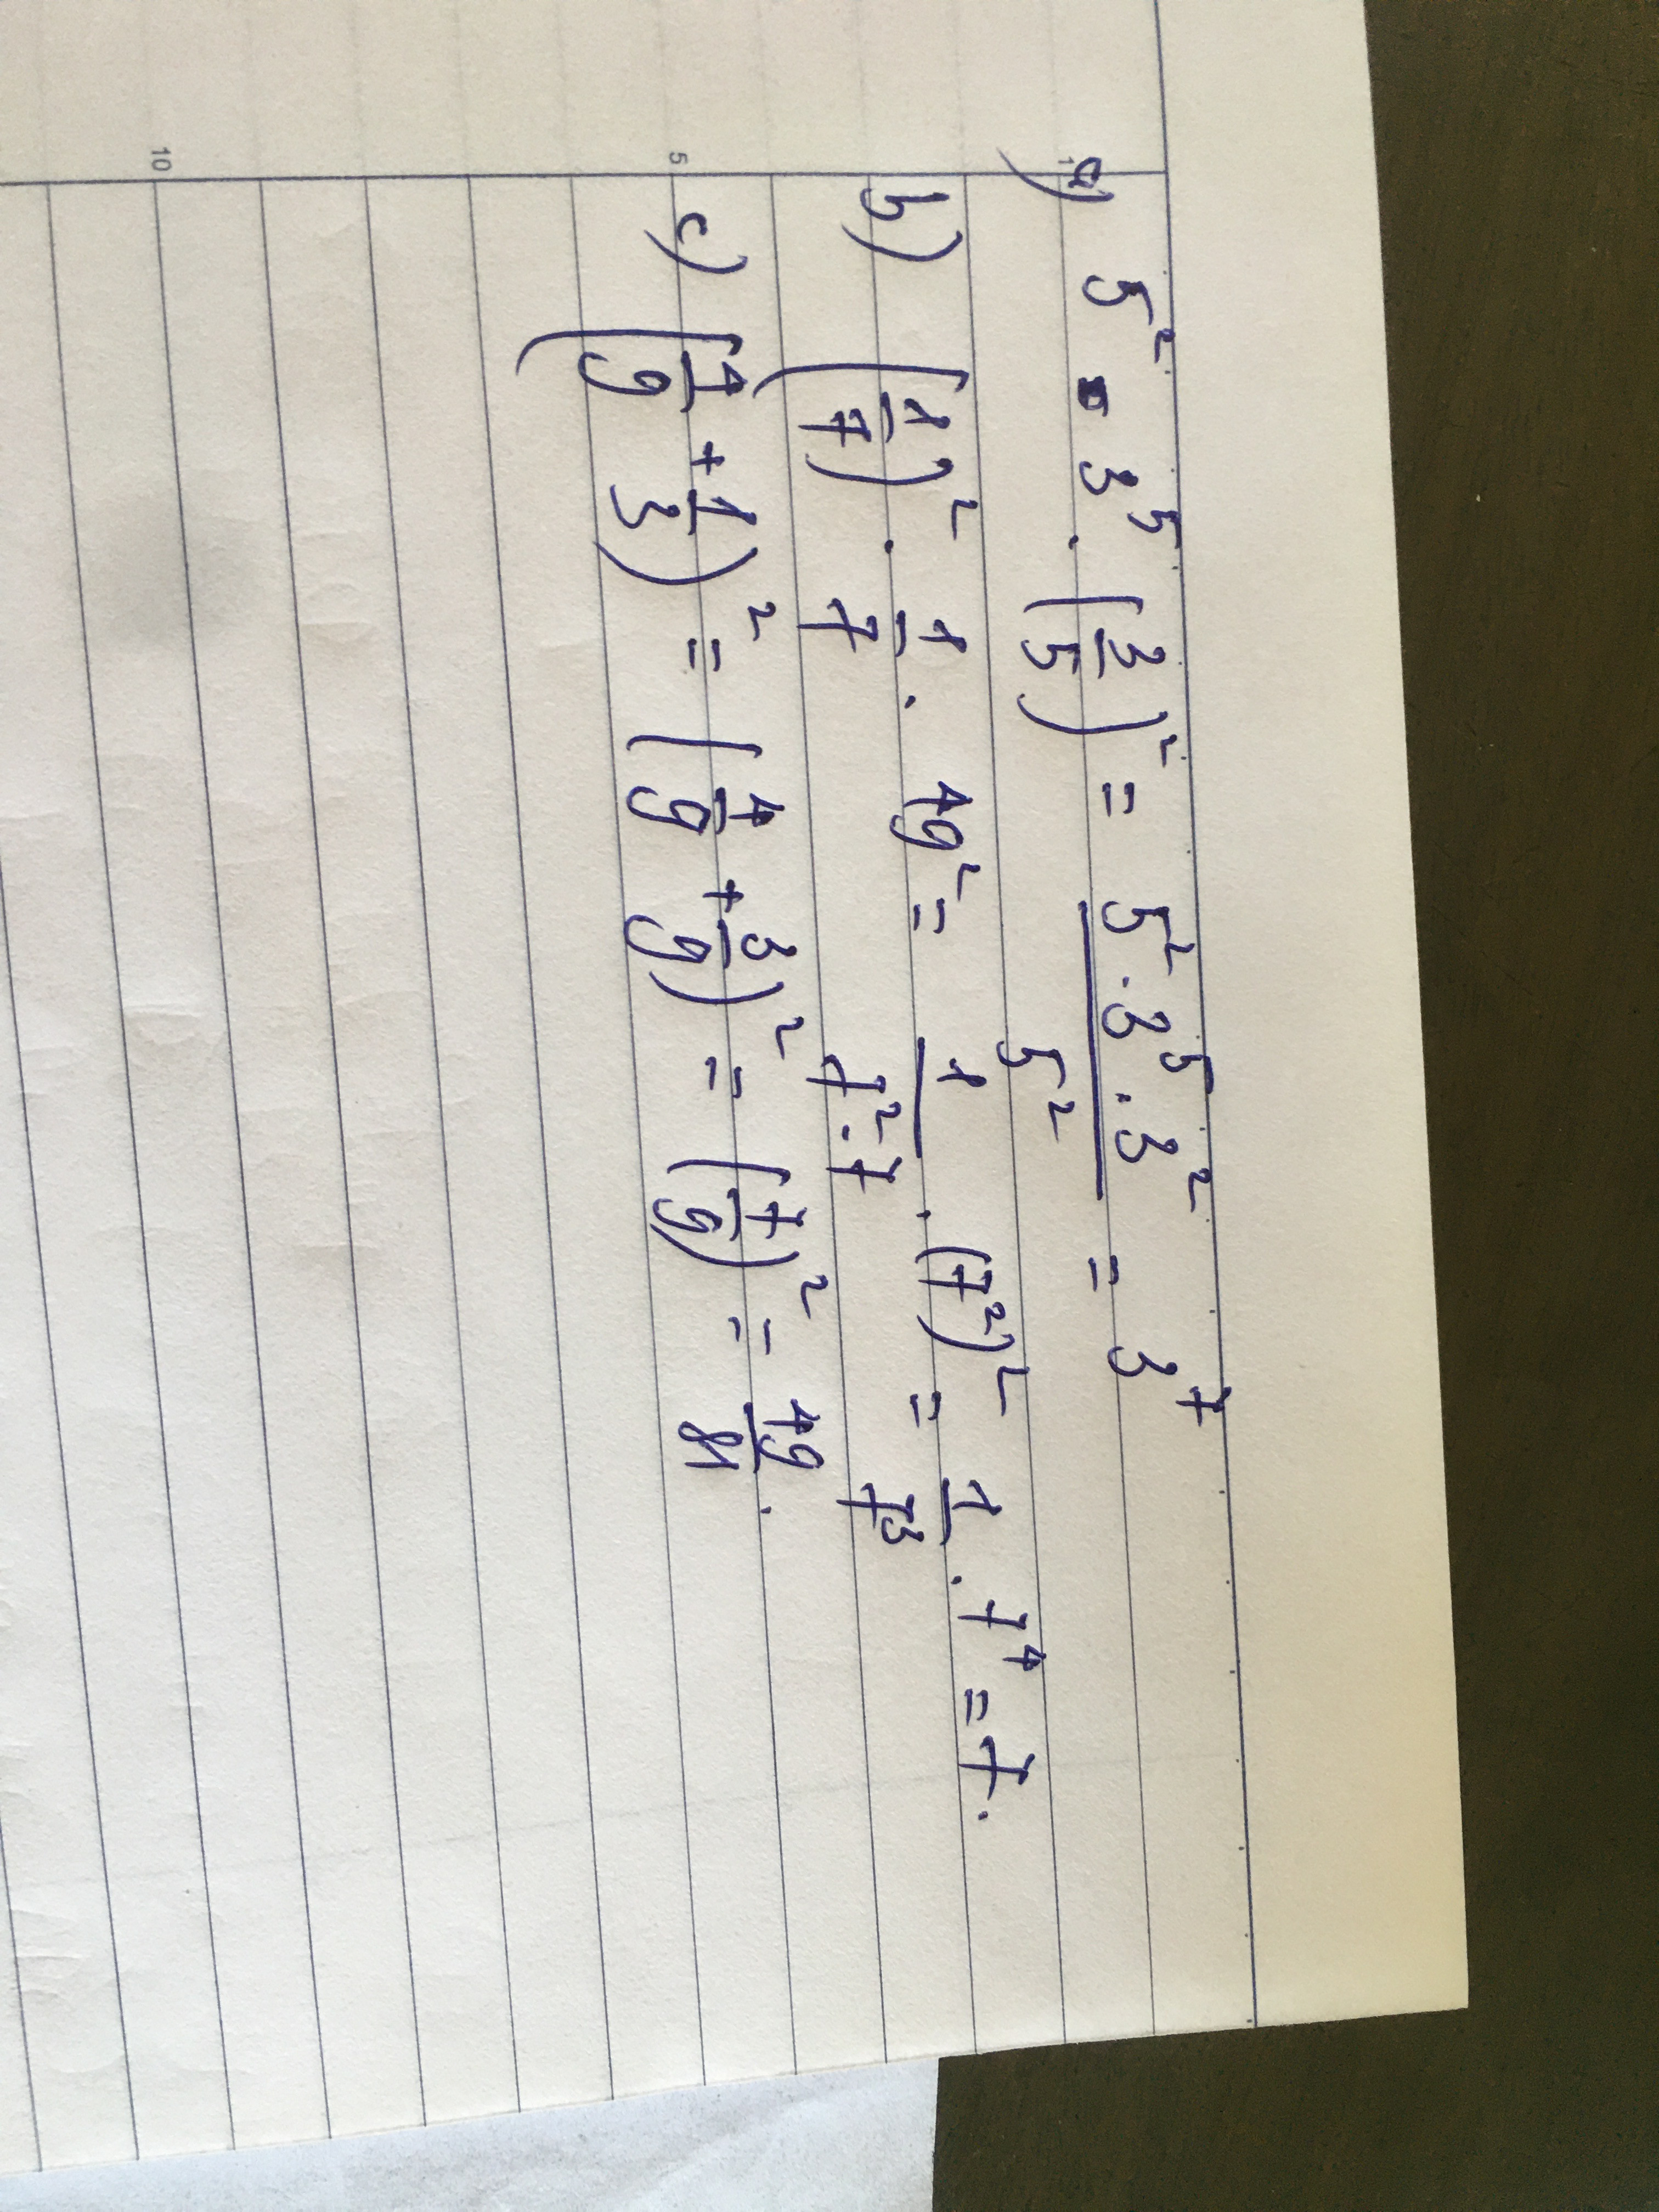 a) 5² . 3⁵ . (3/5)² = (5² . 3⁵ . 3²)/5² = 3⁷
b) (1/7)² . 1/7 . 49² = 1/(7² . 7) . (7²)² = 1/7³ . 7⁴ = 7.
c) (4/9 + 1/3)² = (4/9 + 3/9)² = (7/9)² = 49/81 .
1
5
10